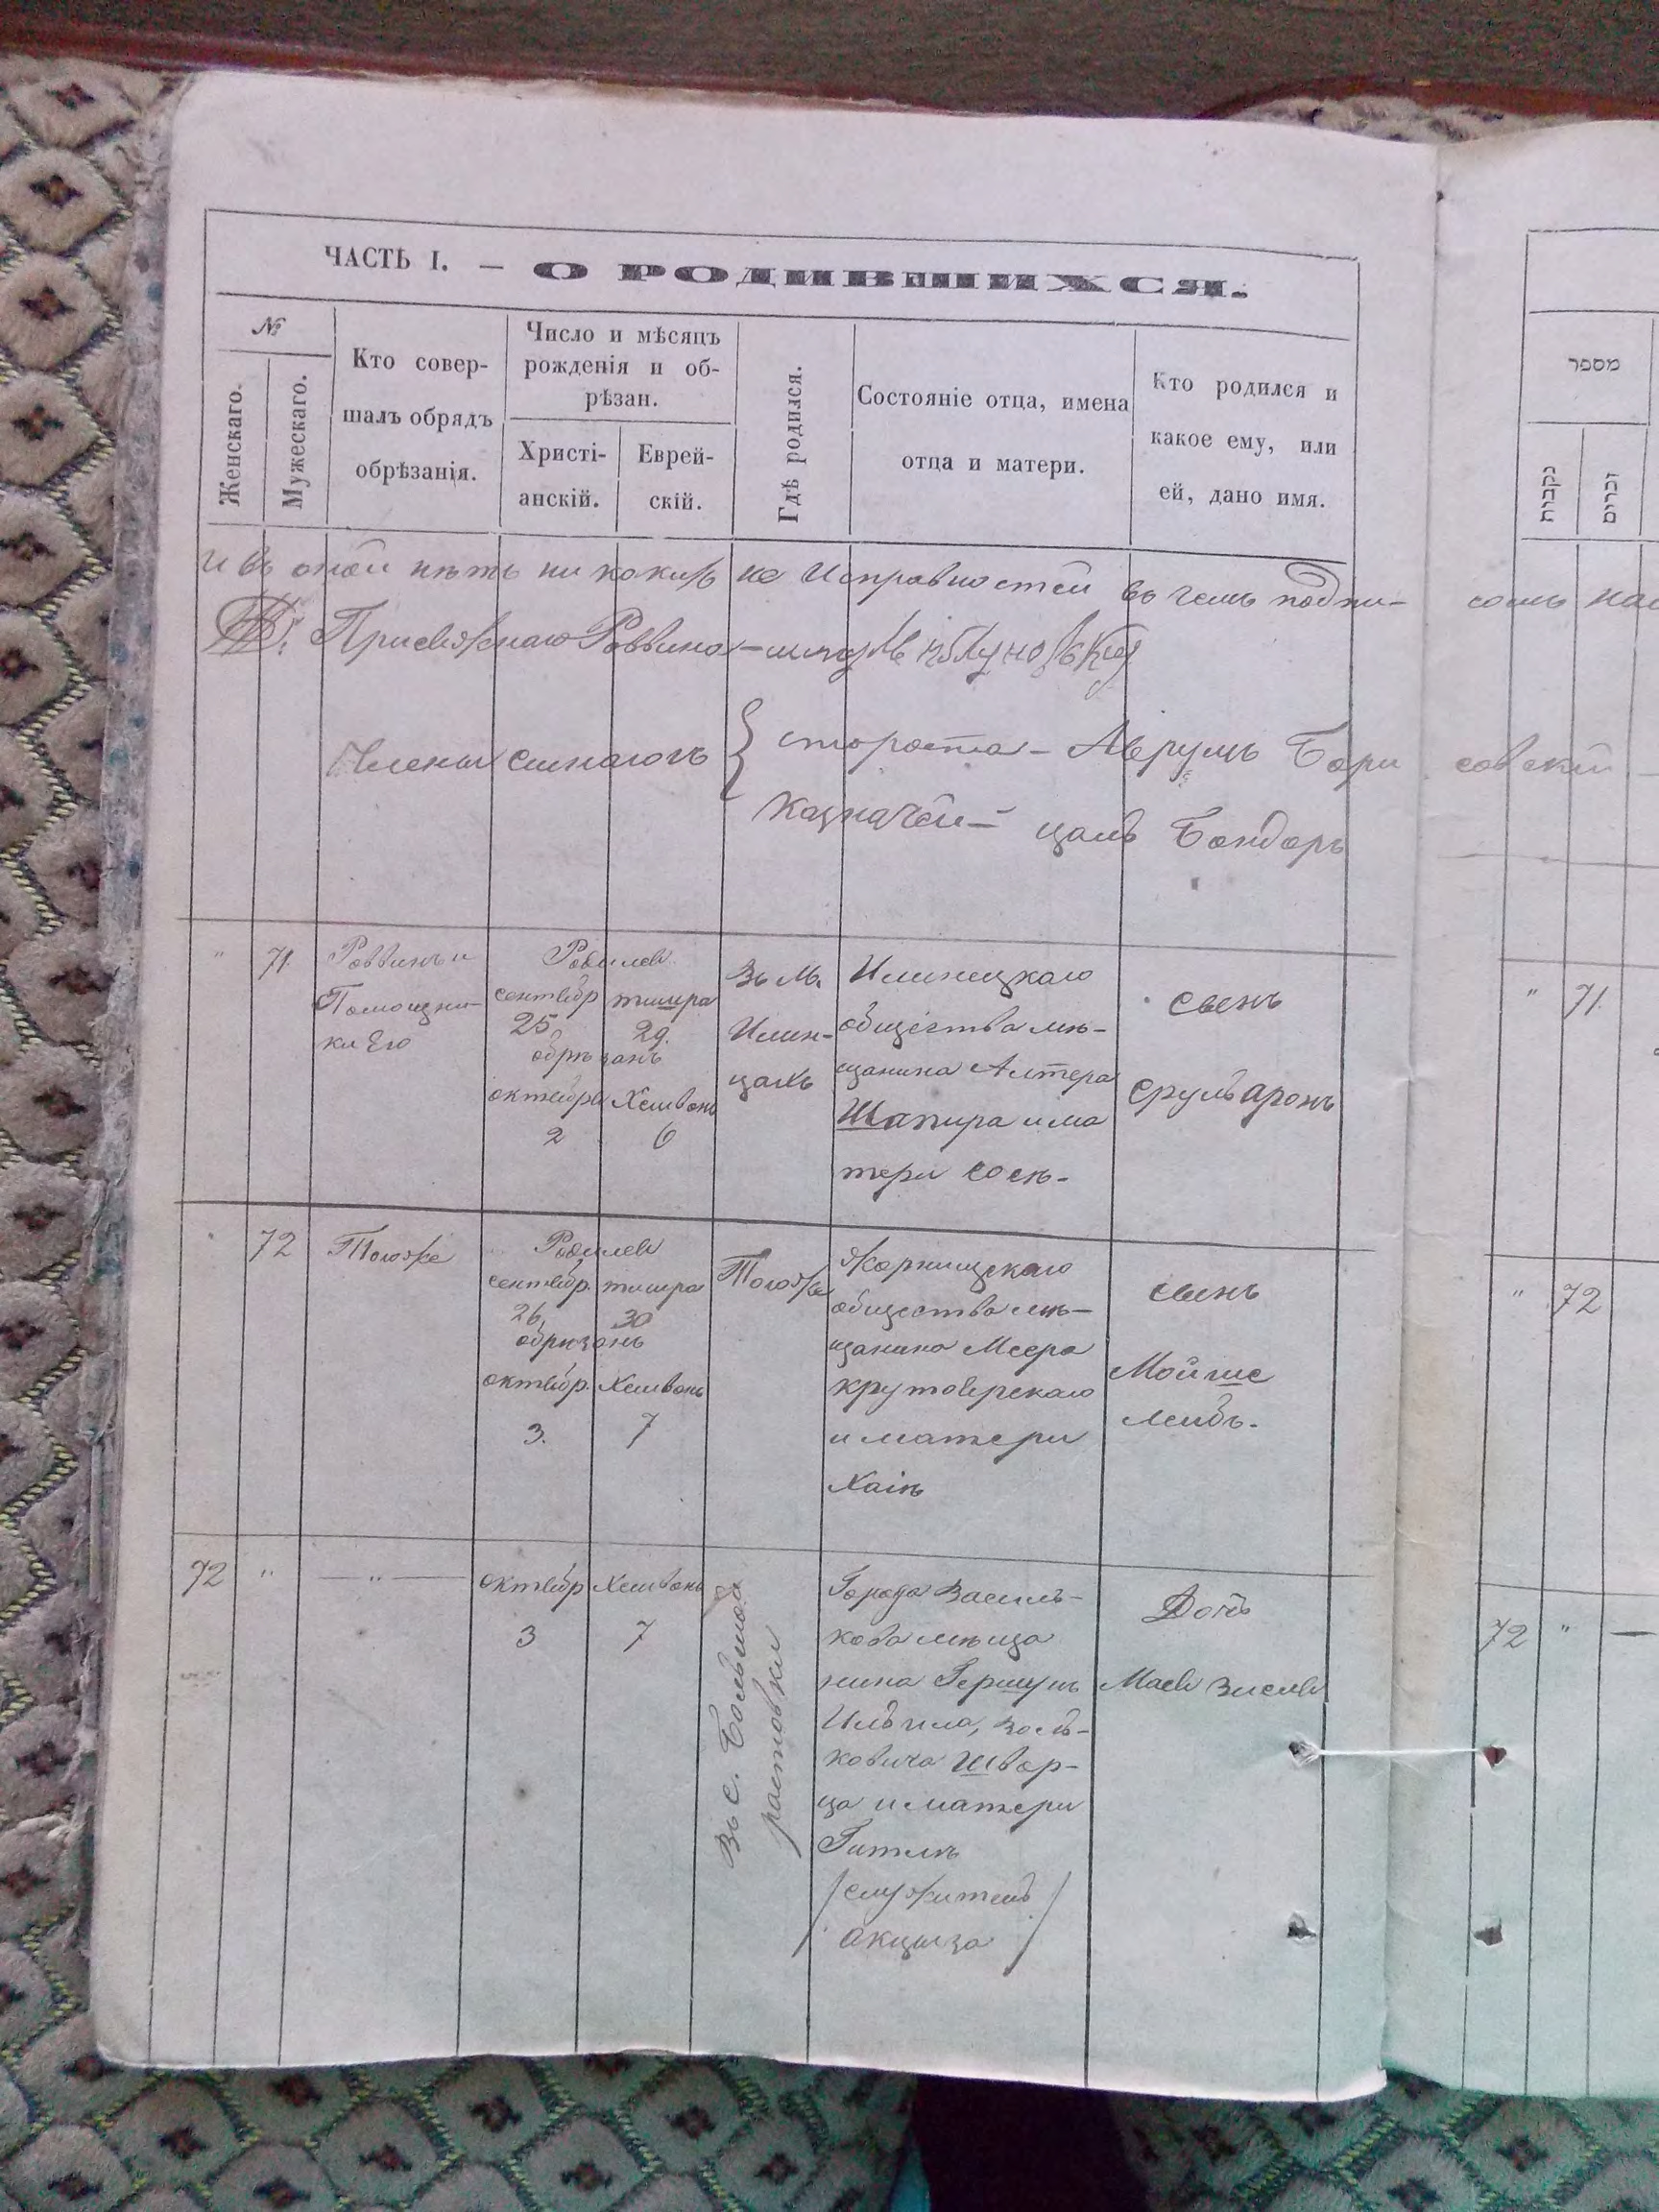 ЧАСТЬ I. — О РОДИВШИХСЯ.
№
Женскаго.
Мужескаго.
Кто совер-
шалъ обрядъ
обрѣзанія.
Число и мѣсяцъ
рожденія и об-
рѣзан.
Христі-
анскій.
Еврей-
скій.
Гдѣ родился.
Состояніе отца, имена
отца и матери.
Кто родился и
какое ему, или
ей, дано имя.
и въ оной нѣтъ ни какихъ не исправностей въ чемъ подпи-
Присяжнаго Раввина
Члены синагогъ { староста – Аврумъ Бори
казначей – Цаль Бондаръ
" 71.
Раввинъ и
Помощни-
ки Его
Родился
сентябр тишра
25. 29.
обрѣзанъ
октября Хешвонъ
2 6
Въ М.
Илин-
цахъ
Илинецкаго
общества мѣ-
щанина Алтера
Шапира и ма
тери Сосѣ-
Сынъ
Срулъ Аронъ
" 72
Тогоже
Родился
сентябр. тишра
26. 30
обрѣзанъ
октябр. Хешвонъ
3. 7
Тогоже
Жорнищскаго
общества мѣ-
щанина Меера
Крутоярскаго
и матери
Хаіѣ
Сынъ
Мойше
Лейбъ.
72 " — " —
октябр Хешвонъ
3 7
Въ с. Большой
растовки
Города Василь-
кова мѣща
нина Гершунъ
Ильила,Воль-
ковича Швар-
ца и матери
Гителѣ
/служитель
акциза/
Дочь
Мася Зисля
מספר
נקבות
זכרים
самъ
совский –
" 71.
" 72
72 " —